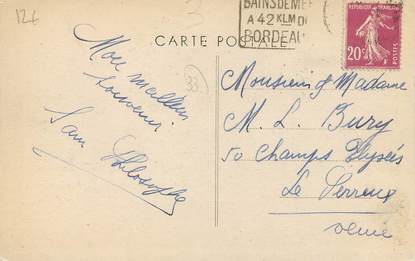 126
BAINS DE MER
A 42 KLM DE
BORDEAU
REPUBLIQUE FRANÇAISE
20c
POSTES
CARTE POSTALE
33
Mon meilleur
souvenir
Sam Philosophe
Monsieur & Madame
M. L. Bury
50 Champs Elysées
Le Perreux
Seine